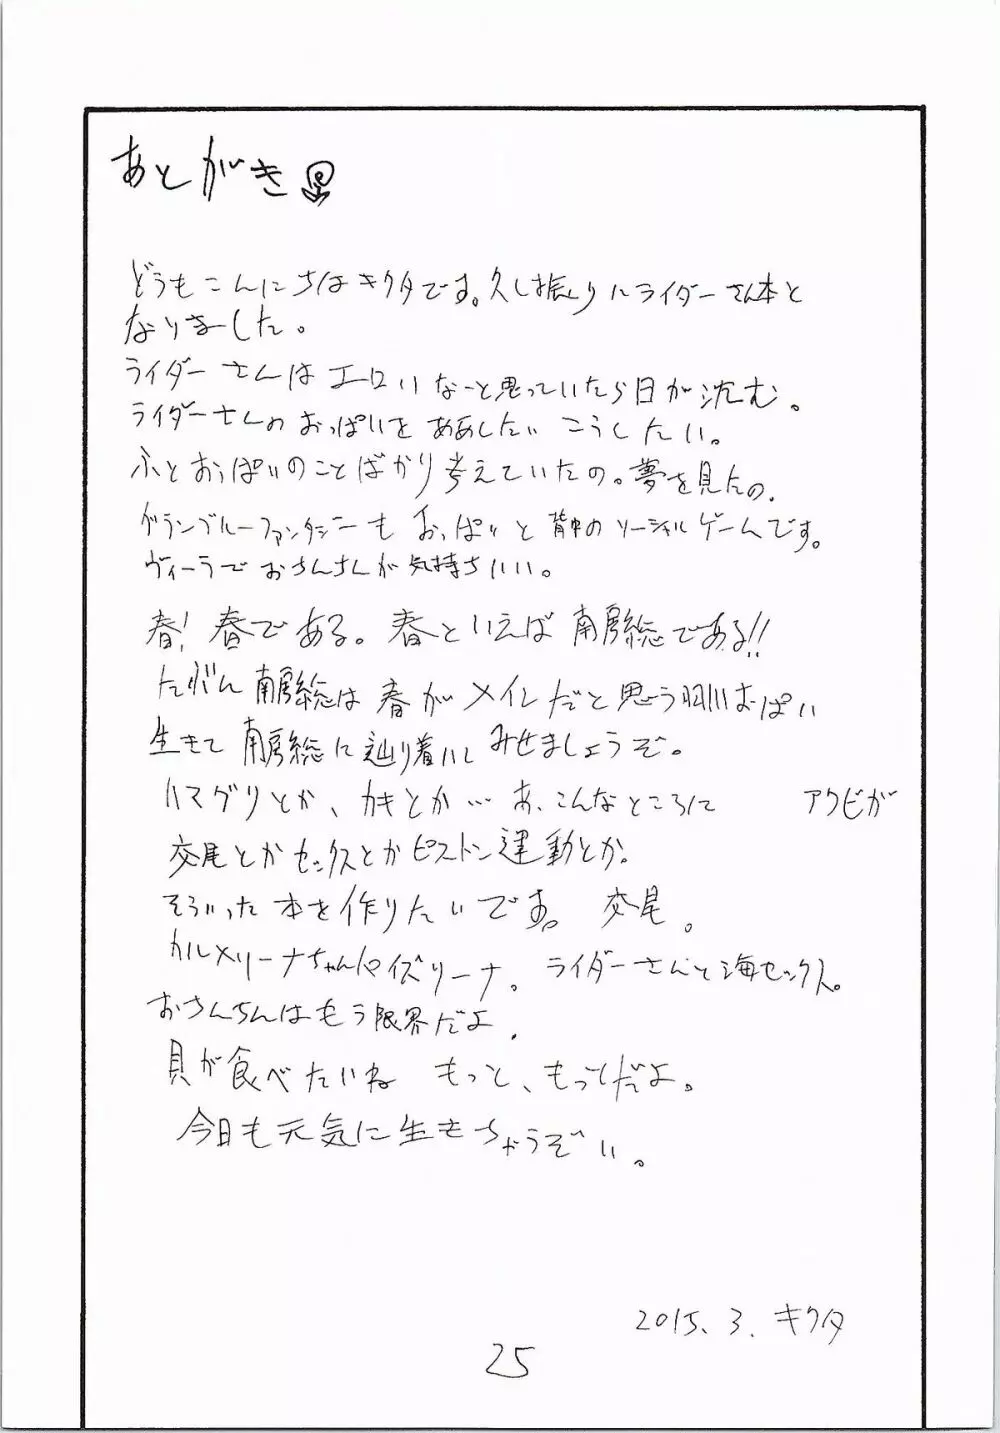 あとがき
どうもこんにちはキクタです。久し振りにライダーさん本と
なりました。
ライダーさんはエロいなーと思っていたら日が沈む。
ライダーさんのおっぱいをああしたいこうしたい。
ふとおっぱいのことばかり考えていたの。夢を見たの.
グランブルーファンタジーもおっぱいと背中のソーシャルゲームです。
ヴィーラでおちんちんが気持ちいい。
春!春である。春といえば南房総である!!
たぶん南房総は春がメインだと思う おっぱい
生きて南房総に辿り着いてみせましょうぞ。
ハマグリとか、カキとか…あ、こんなところに アワビが
交尾とかセックスとかピストン運動とか。
そういった本を作りたいです。交尾。
カルメリーナちゃんパイズリーナ。ライダーさんと海セックス。
おちんちんはもう限界だよ.
貝が食べたいね もっと、もってだよ。
今日も元気に生きちゃうぞい。
2015.3.キクタ
25